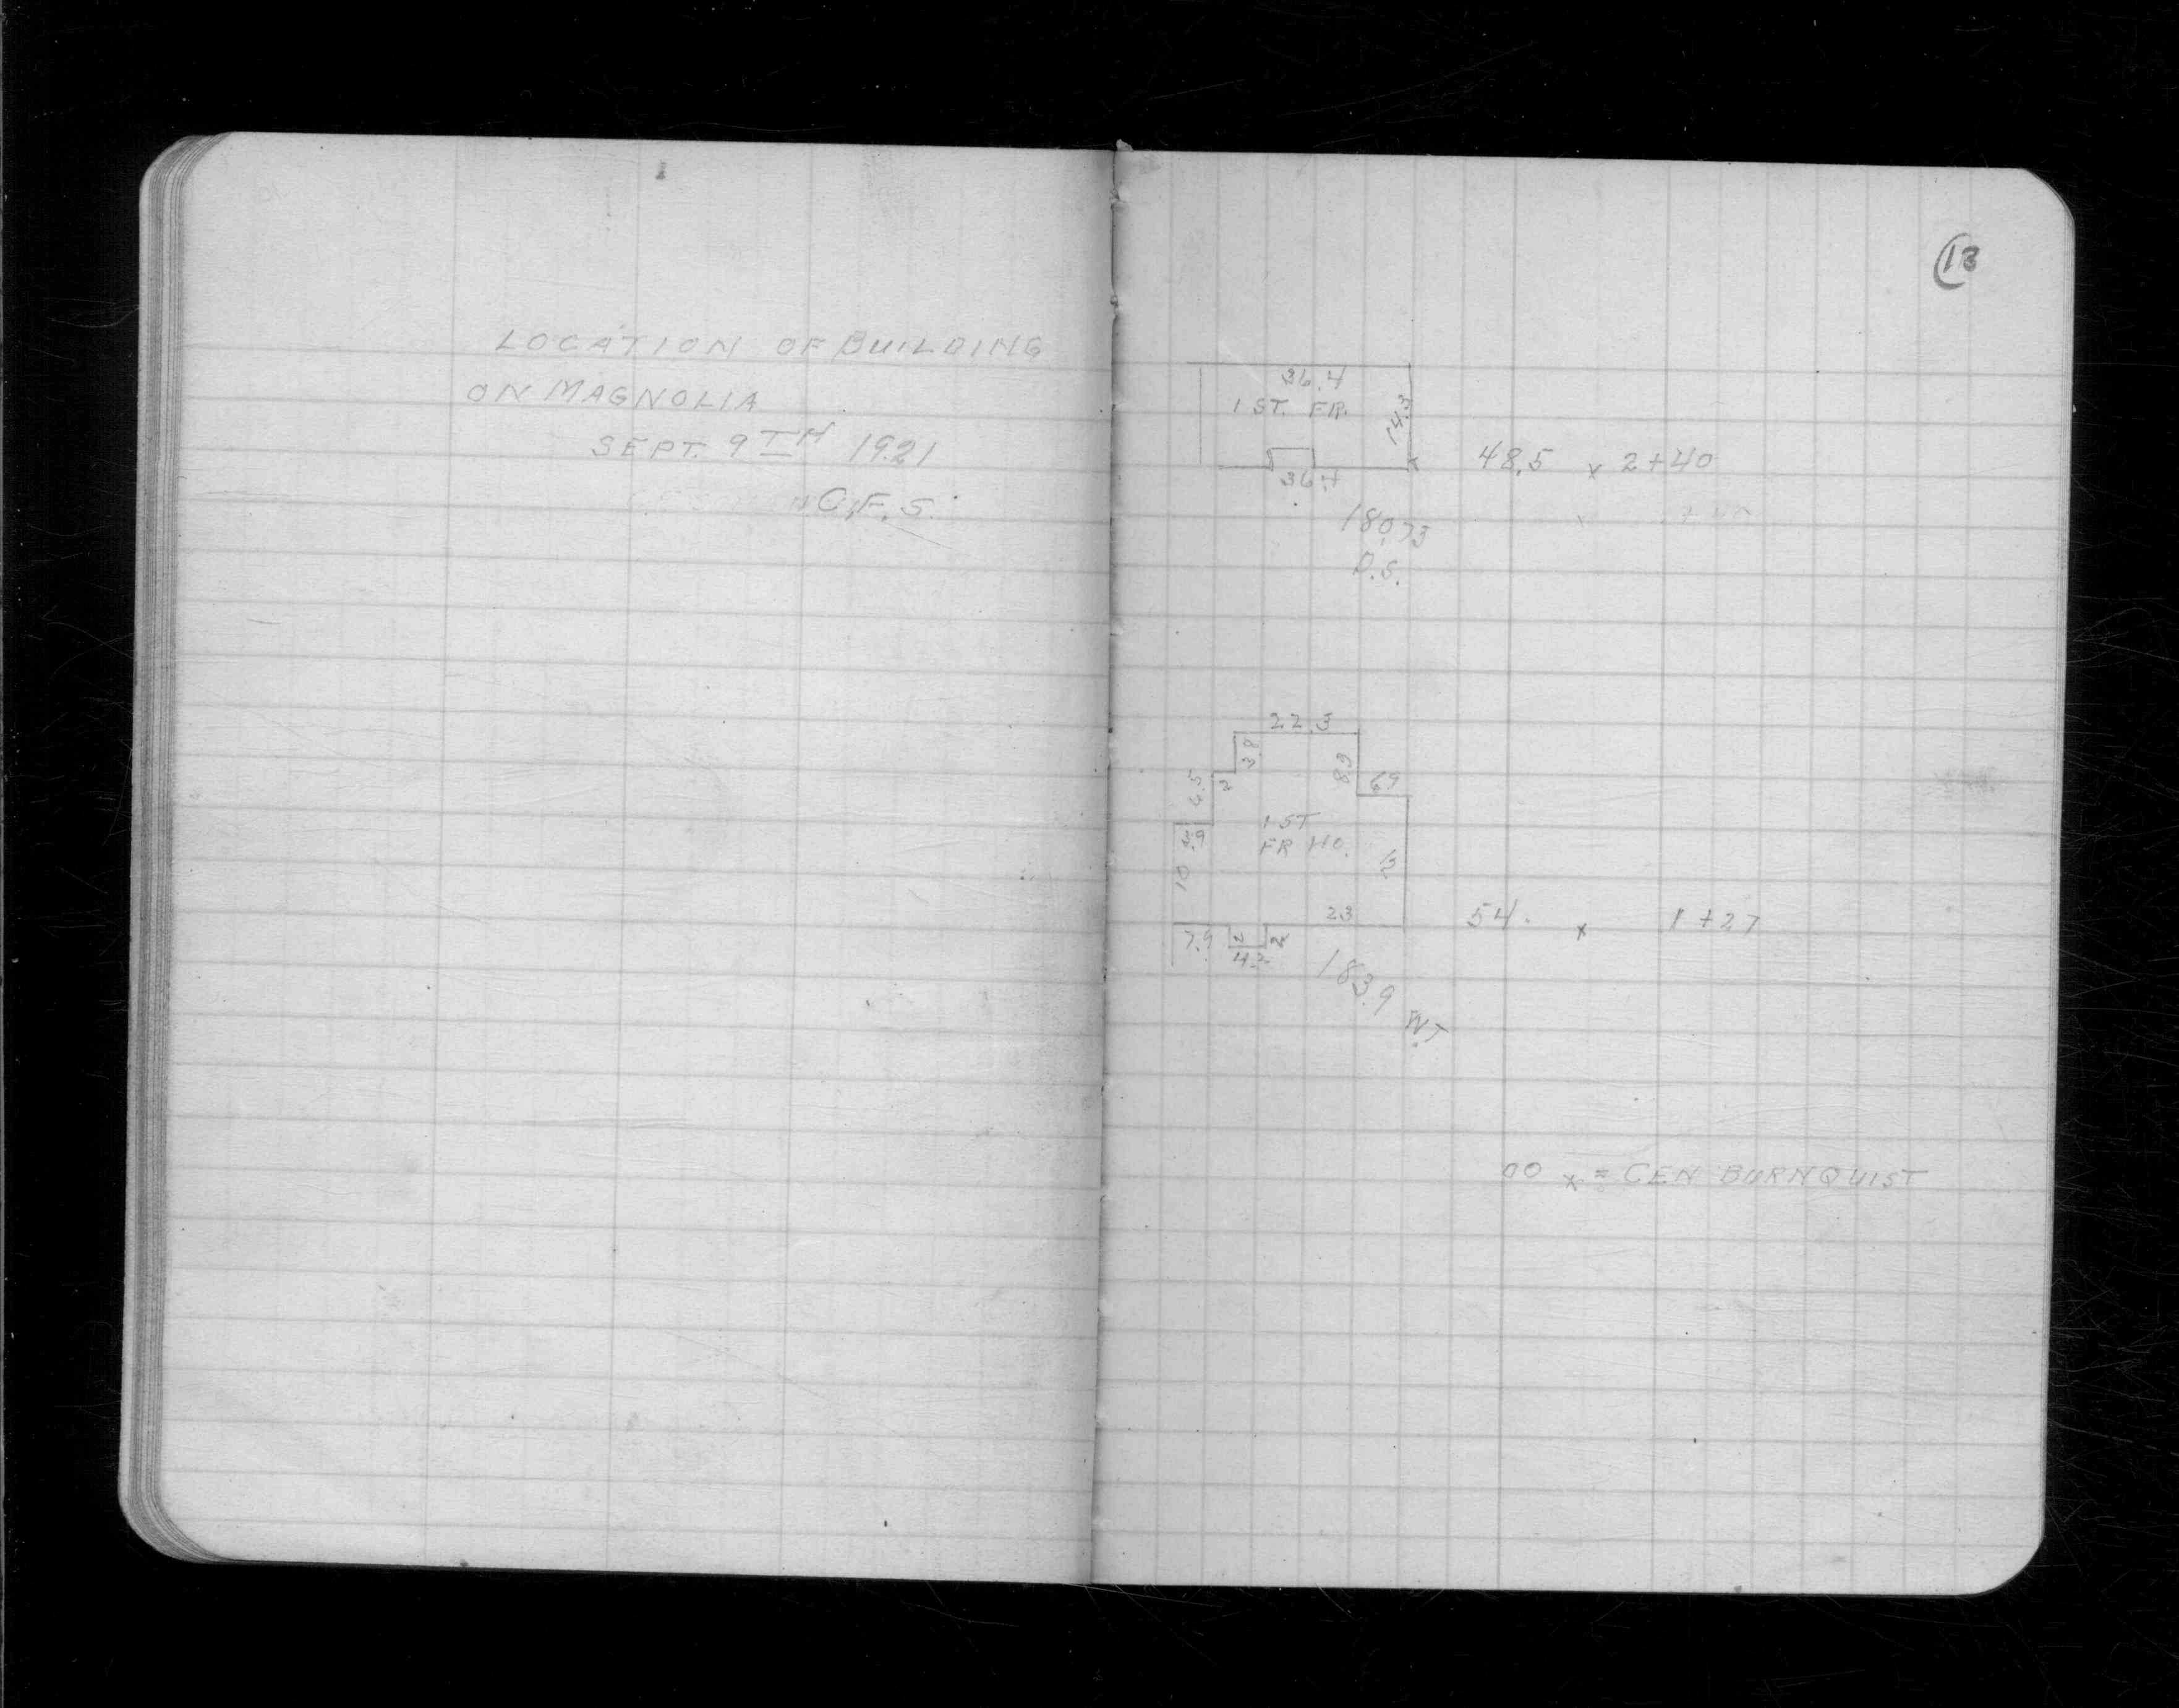 LOCATION OF BUILDING
ON MAGNOLIA
SEPT. 9TH 1921
C.F.S.
13
36.4
1 ST. FR.
14.3
36.4
48.5 x 2+40
180.73
D.S.
22.3
3.8
8.9
6.9
2
6.5
3.9
1 ST
FR HO.
10
13
23
7.9
2
2
4.2
54. x 1+27
183.9
W.T
00 x = CEN BURNQUIST